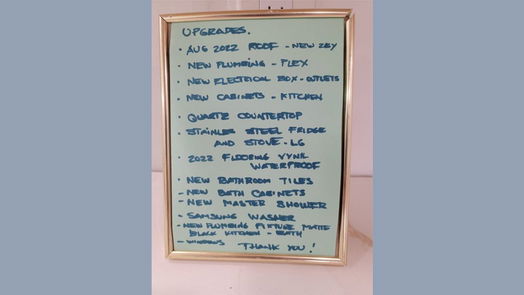 UPGRADES.
• AUG 2022 ROOF - NEW ZEY
• NEW PLUMBING - FLEX
• NEW ELECTRICAL BOX - OUTLETS
• NEW CABINETS - KITCHEN
• QUARTZ COUNTERTOP
• STAINLES STEEL FRIDGE
AND STOVE - LG
• 2022 FLOORING VYNIL
WATERPROOF
• NEW BATHROOM TILES
- NEW BATH CABINETS
- NEW MASTER SHOWER
- SAMSUNG WASHER
- NEW PLUMBING FIXTURE MATTE
BLACK KITCHEN - BATH
- WINDOWS THANK YOU!